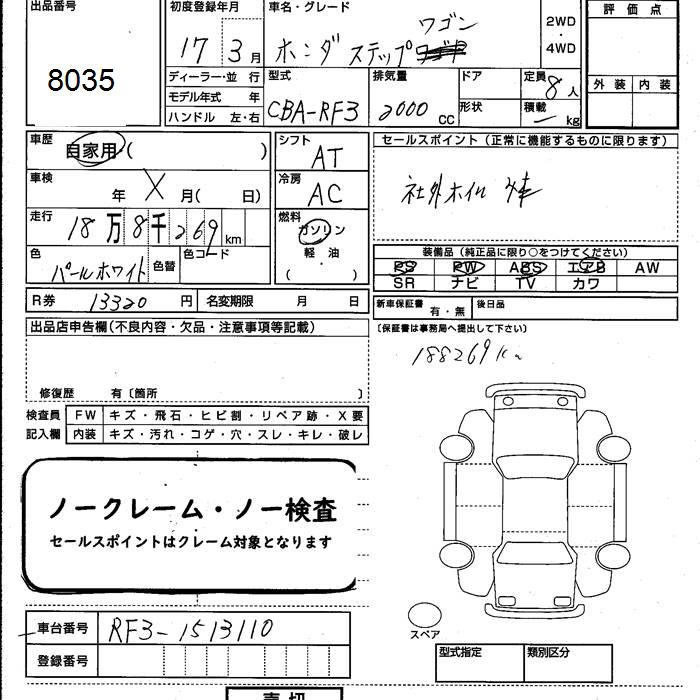 出品番号
8035
初度登録年月
17 3月
車名・グレード
ワゴン
ホンダ ステップ
2WD
・
4WD
評価点
外装 内装
ディーラー・並 行
モデル年式 年
ハンドル 左・右
型式
CBA-RF3
排気量
2000 cc
ドア
形状
定員
8人
積載
― kg
車歴
自家用・( )
車検
年 X 月( 日)
走行
18万8千269 km
色
パールホワイト
色替
色コード
シフト
AT
冷房
AC
燃料
ガソリン
軽・油
( )
セールスポイント(正常に機能するものに限ります)
社外ホイル
装備品(純正品に限り○をつけてください)
PS PW ABS エアB AW
SR ナビ TV カワ
R券 13320 円 名変期限 月 日
新車保証書 有・無 後日品
(保証書は事務局へ提出して下さい)
188269km
出品店申告欄(不良内容・欠品・注意事項等記載)
修復歴 有〔箇所 〕
検査員
記入欄
FW キズ・飛石・ヒビ割・リペア跡・X要
内装 キズ・汚れ・コゲ・穴・スレ・キレ・破レ
ノークレーム・ノー検査
セールスポイントはクレーム対象となります
スペア
車台番号 RF3-1513110
登録番号
型式指定 類別区分
売切